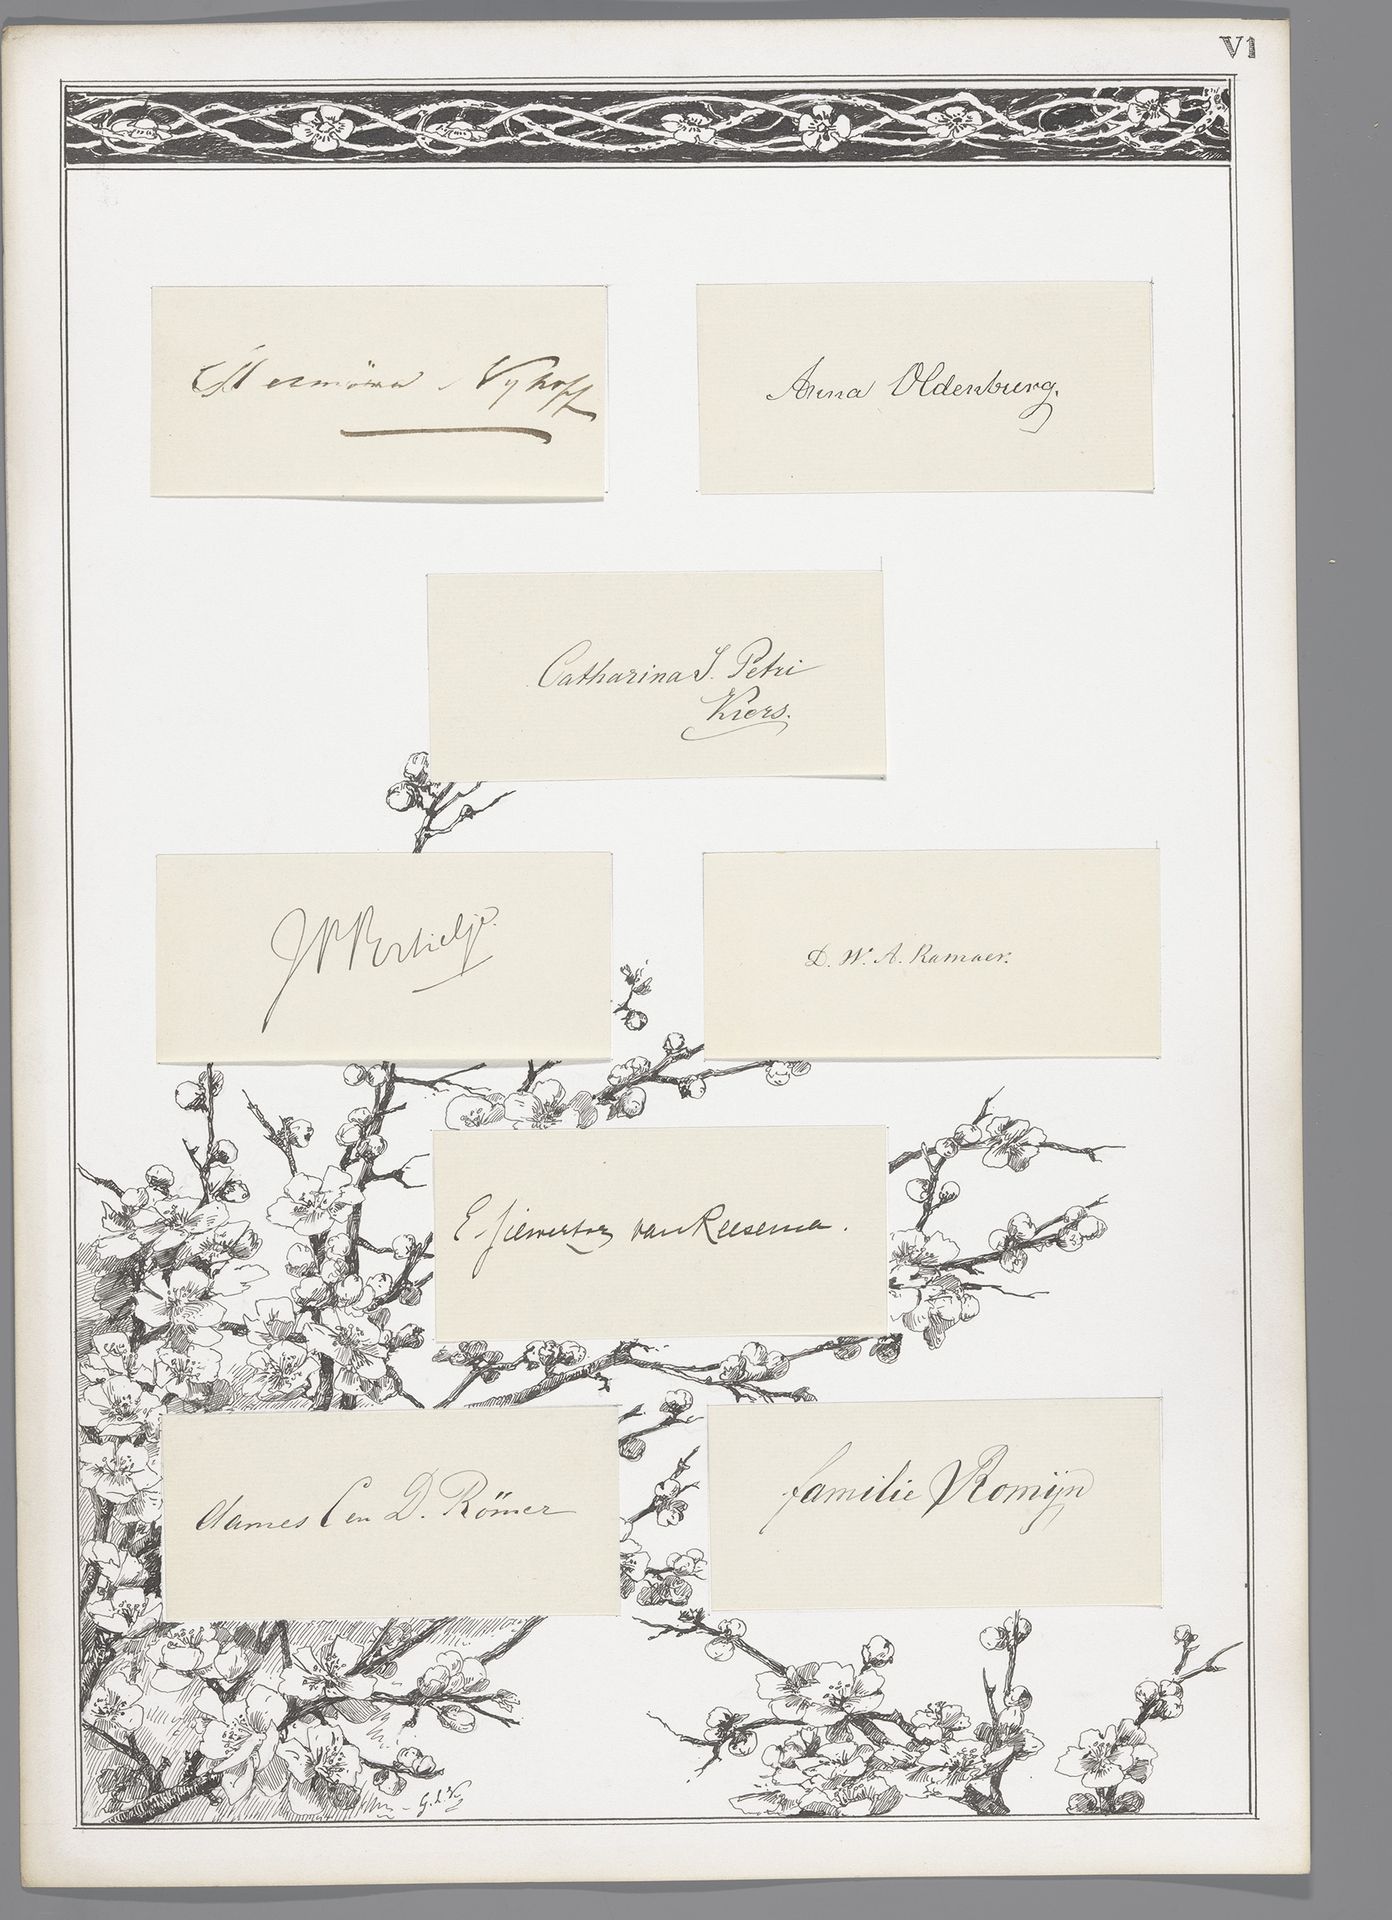 VI
Hermina Nyhoff
Anna Oldenburg.
Catharina J. Petri
Kiers.
D. W. A. Ramaer.
E. Siewertsz van Reesema.
dames C en D. Römer
familie Romijn